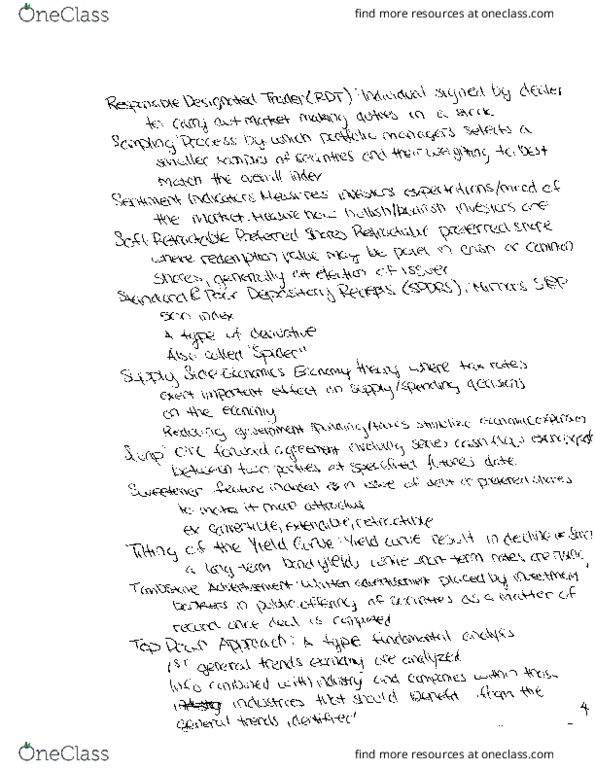 OneClass
find more resources at oneclass.com
Responsible Designated Trader (RDT): Individual signed by dealer
to carry out market making duties in a stock
Sampling Process by which portfolio managers selects a
smaller number of securities and their weighting to best
match the overall index
Sentiment Indicators Measures investors expectations/mood of
the market. Measure how bullish/bearish investors are
Soft Retractable Preferred Shares Retractable preferred share
where redemption value may be paid in cash or common
shares, generally at election of issuer
Standard & Poor Depository Receipts (SPDRS): Mirrors S&P
500 index
A type of derivative
Also called "Spider"
Supply Side Economics Economy theory where tax rates
exert important effect on supply/spending decisions
on the economy
Reducing government spending/taxes stimulize economic expansion
Swap are forward agreement involving series cash flows exchanged
between two parties at specified future date
Sweetener feature included in issue of debt or preferred shares
to make it more attractive
ex convertible, extendable, retractible
Tilting of the Yield Curve: Yield curve result in decline
a long term bond yields while short term rates are rising
Tombstone Advertisement written advertisement placed by investment
bankers in public offering of securities as a matter of
record once deal is completed
Top Down Approach: A type fundamental analysis
1st general trends economy are analyzed
Info combined with industry and companies within those
industries that should benefit from the
general trends identified
4
OneClass
find more resources at oneclass.com